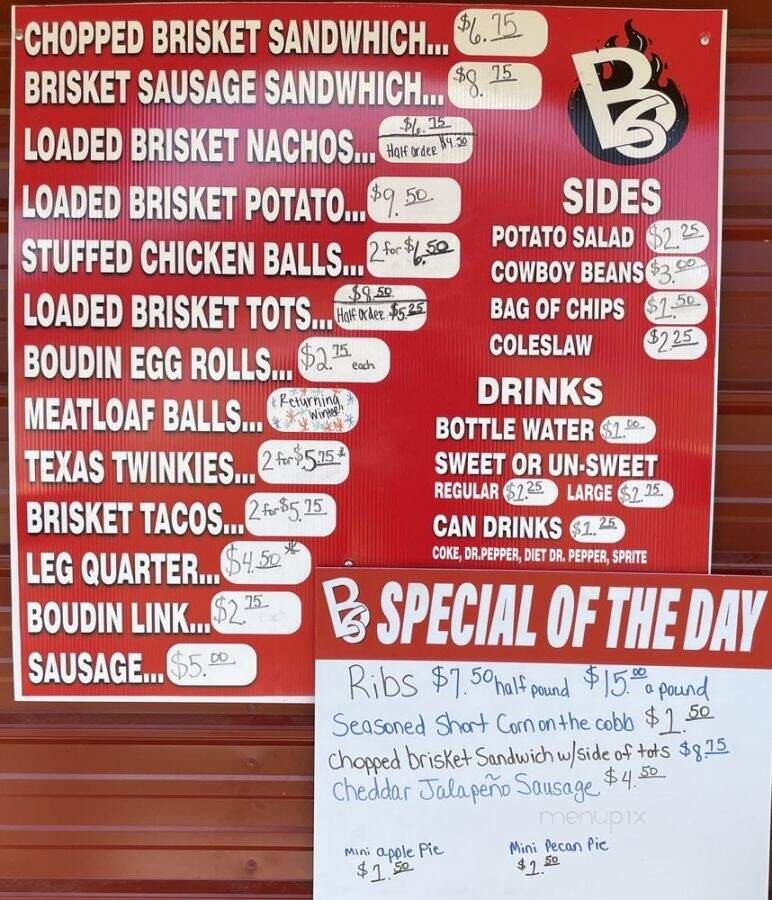 CHOPPED BRISKET SANDWHICH... $6.75
BRISKET SAUSAGE SANDWHICH... $8.75
LOADED BRISKET NACHOS... $6.75
Half order $4.50
LOADED BRISKET POTATO... $9.50
STUFFED CHICKEN BALLS... 2 for $6.50
LOADED BRISKET TOTS... $8.50
Half Order $5.25
BOUDIN EGG ROLLS... $2.75 each
MEATLOAF BALLS... Returning Winter!
TEXAS TWINKIES... 2 for $5.75*
BRISKET TACOS... 2 for $5.75
LEG QUARTER... $4.50*
BOUDIN LINK... $2.75
SAUSAGE... $5.00
BS
SIDES
POTATO SALAD $2.25
COWBOY BEANS $3.00
BAG OF CHIPS $1.50
COLESLAW $2.25
DRINKS
BOTTLE WATER $1.00
SWEET OR UN-SWEET
REGULAR $1.25 LARGE $1.75
CAN DRINKS $1.25
COKE, DR.PEPPER, DIET DR. PEPPER, SPRITE
BS SPECIAL OF THE DAY
Ribs $7.50 half pound $15.00 a pound
Seasoned Short Corn on the cobb $1.50
Chopped brisket Sandwich w/side of tots $8.75
Cheddar Jalapeño Sausage $4.50
menupix
Mini apple Pie Mini Pecan Pie
$1.50 $1.50